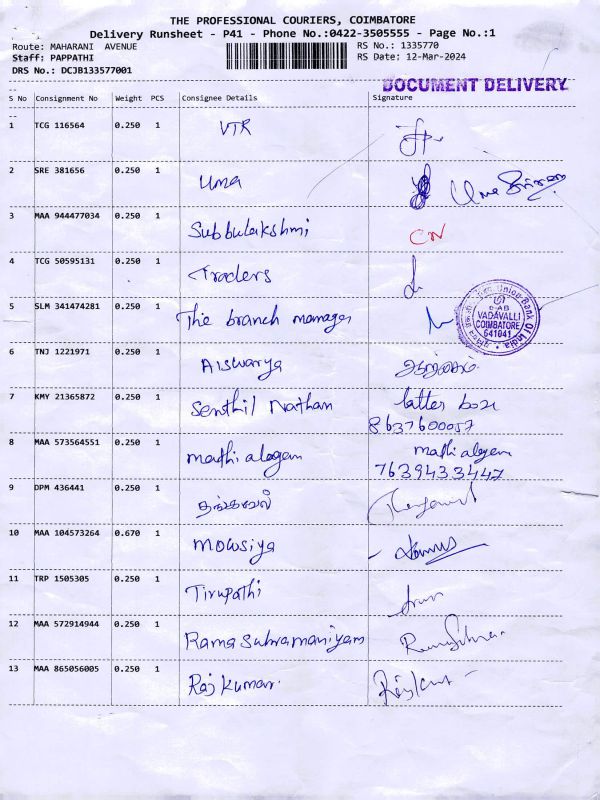 THE PROFESSIONAL COURIERS, COIMBATORE
Delivery Runsheet - P41 - Phone No.:0422-3505555 - Page No.:1
Route: MAHARANI AVENUE RS No.: 1335770
Staff: PAPPATHI RS Date: 12-Mar-2024
DRS No.: DCJB133577001
DOCUMENT DELIVERY
S No Consignment No Weight PCS Consignee Details Signature
1 TCG 116564 0.250 1 VTR
2 SRE 381656 0.250 1 Uma Uma Sriram
3 MAA 944477034 0.250 1 Subbulakshmi CN
4 TCG 50595131 0.250 1 Traders
5 SLM 341474281 0.250 1 The branch manager
Union Bank Of India
VADAVALLI
COIMBATORE
641041
6 TNJ 1221971 0.250 1 Aiswarya
7 KMY 21365872 0.250 1 Senthil Nathan latter box
8637600057
8 MAA 573564551 0.250 1 mathi alagan mathi alagan
7639433447
9 DPM 436441 0.250 1 தங்கவேல்
10 MAA 104573264 0.670 1 Mowsiya
11 TRP 1505305 0.250 1 Tirupathi
12 MAA 572914944 0.250 1 Rama Subramaniyam
13 MAA 865056005 0.250 1 Raj kumar.